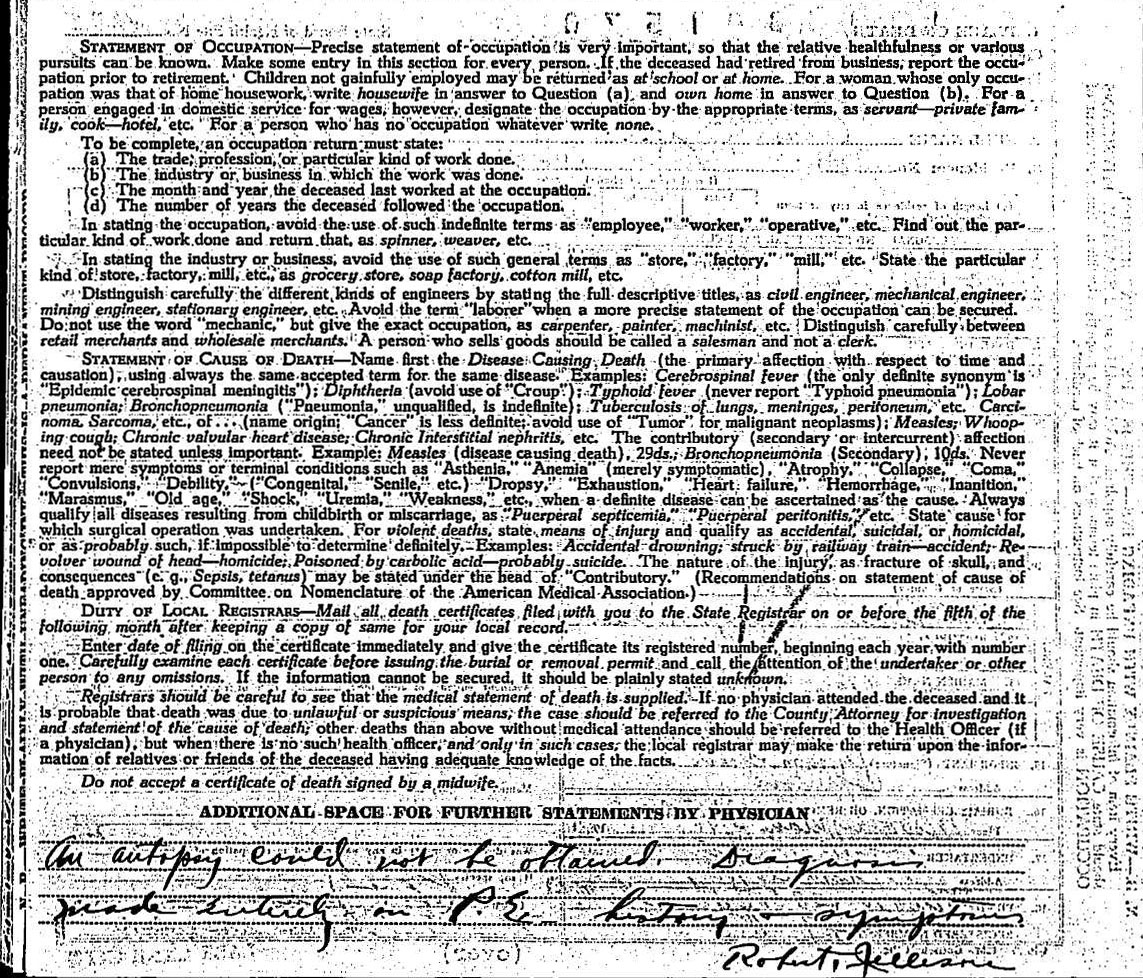 STATEMENT OF OCCUPATION—Precise statement of occupation is very important, so that the relative healthfulness or various
pursuits can be known. Make some entry in this section for every person. If the deceased had retired from business, report the occu-
pation prior to retirement. Children not gainfully employed may be returned as at school or at home. For a woman whose only occu-
pation was that of home housework, write housewife in answer to Question (a) and own home in answer to Question (b). For a
person engaged in domestic service for wages, however, designate the occupation by the appropriate terms, as servant—private fam-
ily, cook—hotel, etc. For a person who has no occupation whatever write none.
To be complete, an occupation return must state:
(a) The trade, profession, or particular kind of work done.
(b) The industry or business in which the work was done.
(c) The month and year the deceased last worked at the occupation.
(d) The number of years the deceased followed the occupation.
In stating the occupation, avoid the use of such indefinite terms as "employee," "worker," "operative," etc. Find out the par-
ticular kind of work done and return that, as spinner, weaver, etc.
In stating the industry or business, avoid the use of such general terms as "store," "factory," "mill," etc. State the particular
kind of store, factory, mill, etc., as grocery store, soap factory, cotton mill, etc.
Distinguish carefully the different kinds of engineers by stating the full descriptive titles, as civil engineer, mechanical engineer,
mining engineer, stationary engineer, etc. Avoid the term "laborer" when a more precise statement of the occupation can be secured.
Do not use the word "mechanic," but give the exact occupation, as carpenter, painter, machinist, etc. Distinguish carefully between
retail merchants and wholesale merchants. A person who sells goods should be called a salesman and not a clerk.
STATEMENT OF CAUSE OF DEATH—Name first the Disease Causing Death (the primary affection with respect to time and
causation), using always the same accepted term for the same disease. Examples: Cerebrospinal fever (the only definite synonym is
"Epidemic cerebrospinal meningitis"); Diphtheria (avoid use of "Croup"); Typhoid fever (never report "Typhoid pneumonia"); Lobar
pneumonia; Bronchopneumonia ("Pneumonia," unqualified, is indefinite); Tuberculosis of lungs, meninges, peritoneum, etc. Carci-
noma, Sarcoma, etc., of ... (name origin; "Cancer" is less definite; avoid use of "Tumor" for malignant neoplasms); Measles; Whoop-
ing cough; Chronic valvular heart disease; Chronic Interstitial nephritis, etc. The contributory (secondary or intercurrent) affection
need not be stated unless important. Example: Measles (disease causing death), 29ds.; Bronchopneumonia (Secondary), 10ds. Never
report mere symptoms or terminal conditions such as "Asthenia," "Anemia" (merely symptomatic), "Atrophy," "Collapse," "Coma,"
"Convulsions," "Debility," ("Congenital," "Senile," etc.) "Dropsy," "Exhaustion," "Heart failure," "Hemorrhage," "Inanition,"
"Marasmus," "Old age," "Shock," "Uremia," "Weakness," etc., when a definite disease can be ascertained as the cause. Always
qualify all diseases resulting from childbirth or miscarriage, as "Puerperal septicemia," "Puerperal peritonitis," etc. State cause for
which surgical operation was undertaken. For violent deaths, state means of injury and qualify as accidental, suicidal, or homicidal,
or as probably such, if impossible to determine definitely. Examples: Accidental drowning; struck by railway train—accident; Re-
volver wound of head—homicide; Poisoned by carbolic acid—probably suicide. The nature of the injury, as fracture of skull, and
consequences (e. g., Sepsis, tetanus) may be stated under the head of "Contributory." (Recommendations on statement of cause of
death approved by Committee on Nomenclature of the American Medical Association.)
DUTY OF LOCAL REGISTRARS—Mail all death certificates filed with you to the State Registrar on or before the fifth of the
following month after keeping a copy of same for your local record.
Enter date of filing on the certificate immediately and give the certificate its registered number, beginning each year with number
one. Carefully examine each certificate before issuing the burial or removal permit and call the attention of the undertaker or other
person to any omissions. If the information cannot be secured, it should be plainly stated unknown.
Registrars should be careful to see that the medical statement of death is supplied. If no physician attended the deceased and it
is probable that death was due to unlawful or suspicious means, the case should be referred to the County Attorney for investigation
and statement of the cause of death; other deaths than above without medical attendance should be referred to the Health Officer (if
a physician), but when there is no such health officer, and only in such cases, the local registrar may make the return upon the infor-
mation of relatives or friends of the deceased having adequate knowledge of the facts.
Do not accept a certificate of death signed by a midwife.
ADDITIONAL SPACE FOR FURTHER STATEMENTS BY PHYSICIAN
An autopsy could not be obtained. Diagnosis
made entirely on P. E. history & symptoms
Robert Jellison